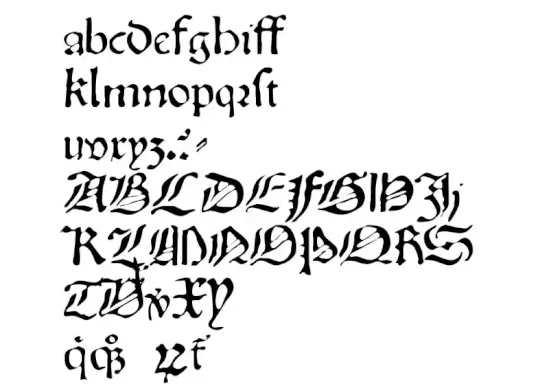 abcdefghiff
klmnopqꝛſt
uvxyz.:⸗
ABCDEFGHJj
KLMNOPQRS
TVvXY